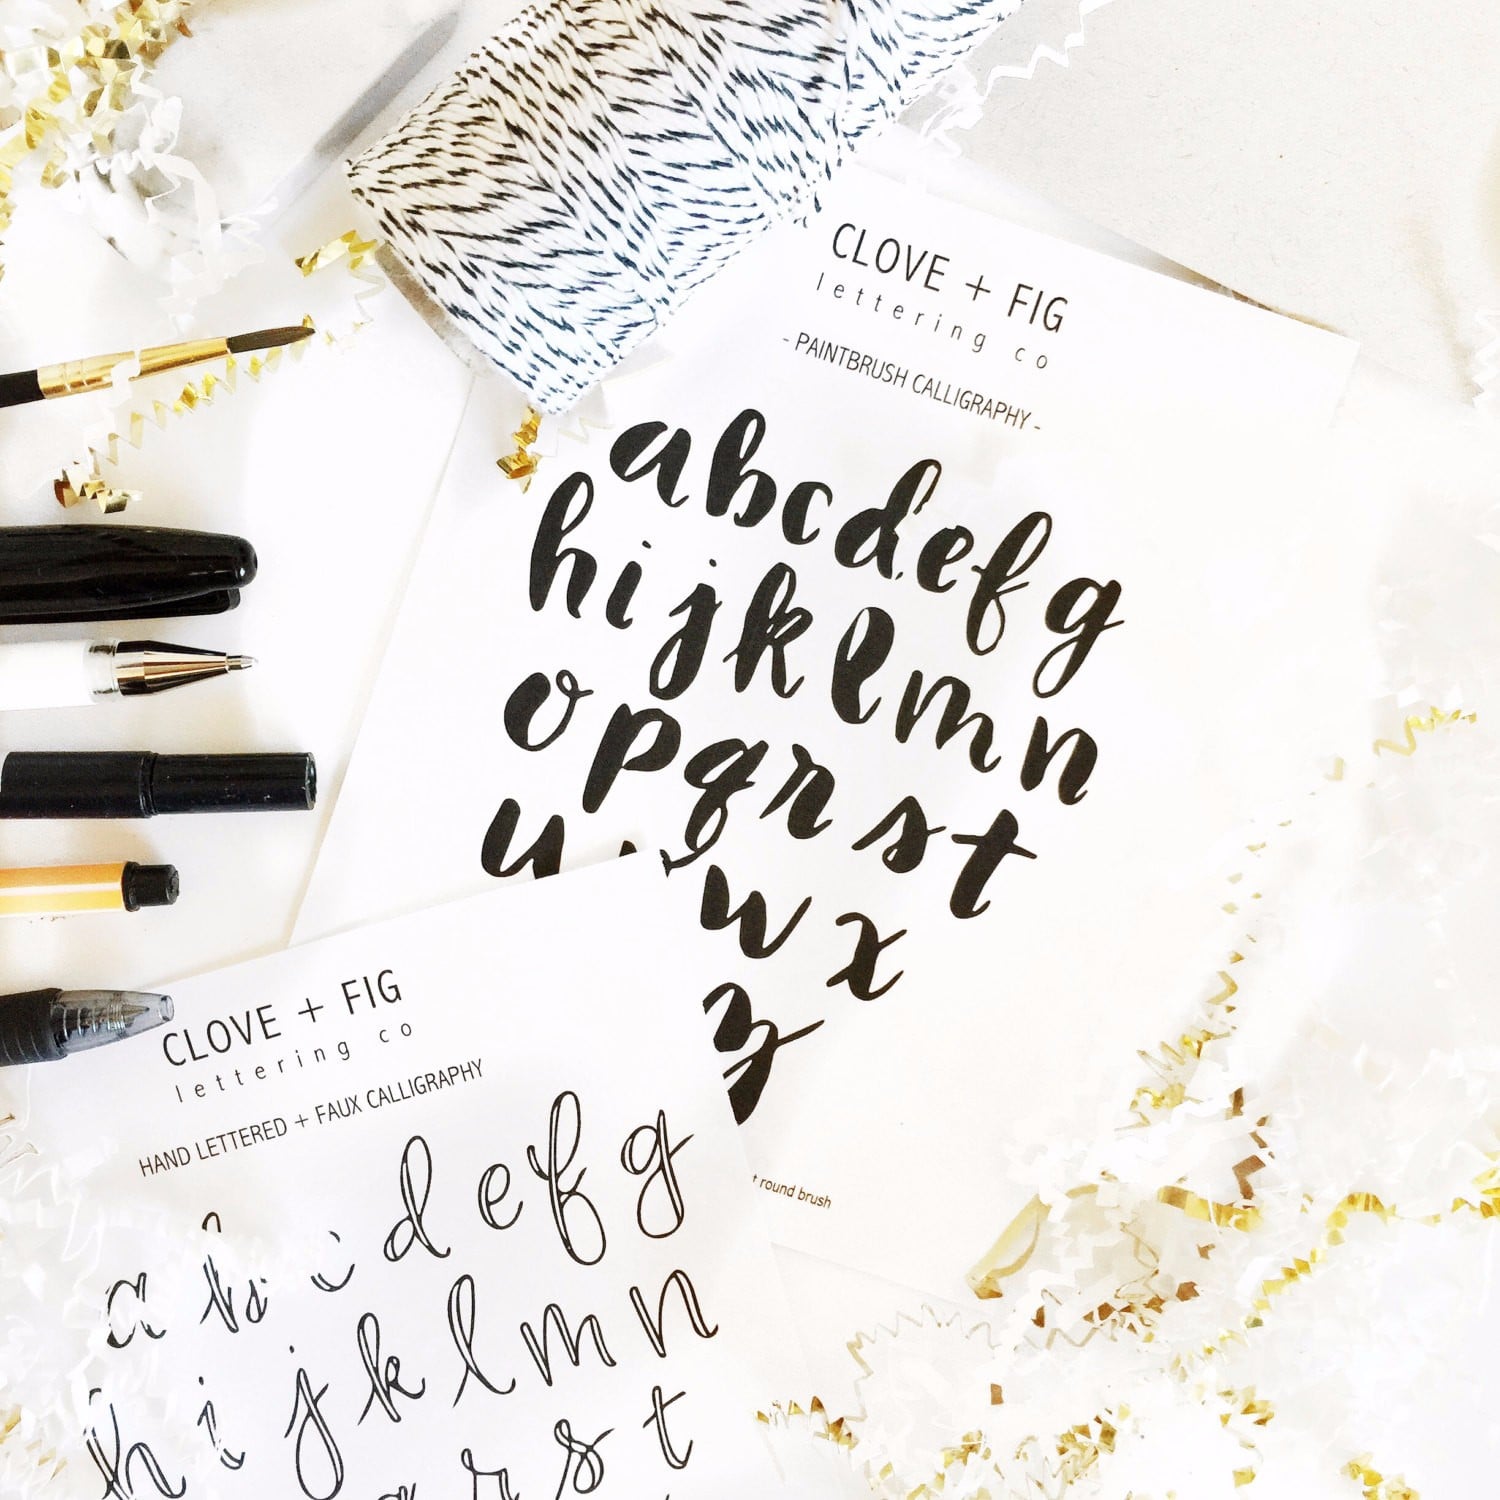 CLOVE + FIG
lettering co
- PAINTBRUSH CALLIGRAPHY -
a b c d e f g
h i j k l m n
o p q r s t
u w x
z
t round brush
CLOVE + FIG
lettering co
HAND LETTERED + FAUX CALLIGRAPHY
a b d e f g
h i j k l m n
r s t